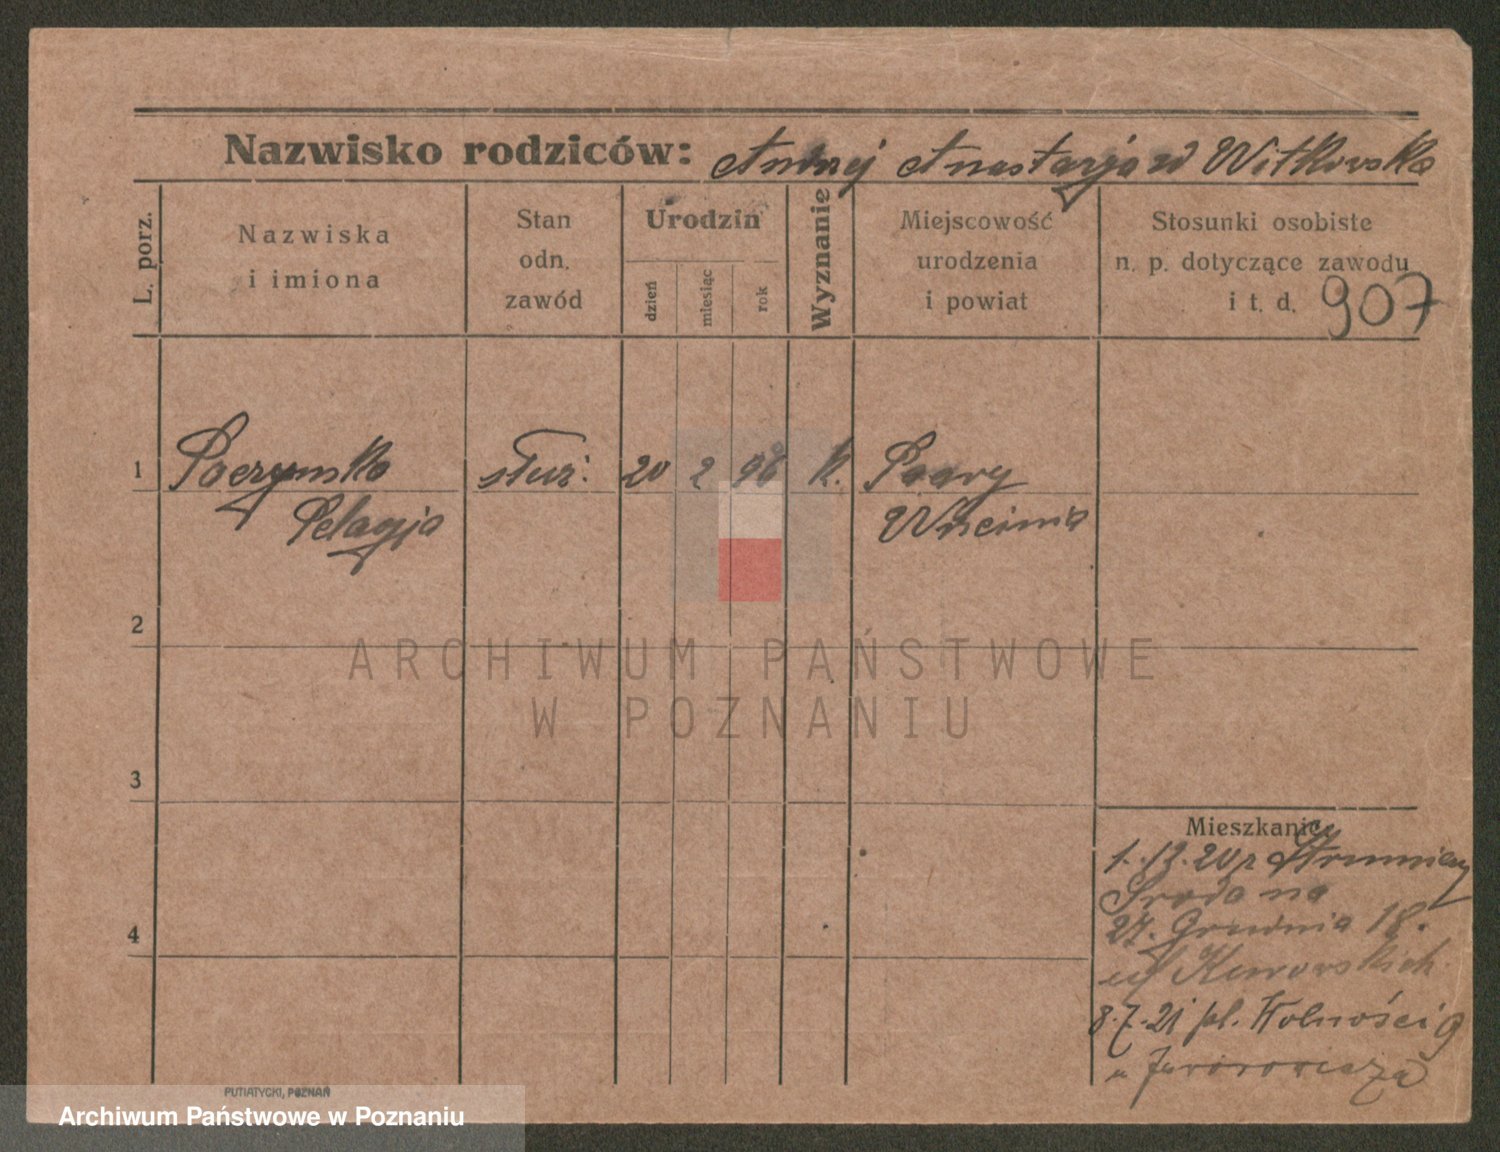 Nazwisko rodziców: Andrzej Anastazja w Witkowska
L. porz.
Nazwiska
i imiona
Stan
odn.
zawód
Urodzin
dzień
miesiąc
rok
Wyznanie
Miejscowość
urodzenia
i powiat
Stosunki osobiste
n. p. dotyczące zawodu
i t. d. 907
1 służ. 20 2 96 k.
Pelagja
2
ARCHIWUM PAŃSTWOWE
W POZNANIU
3
Mieszkanie
1.12.20 z
Środa na
4 27. Grudnia 18.
8.7.21 pl. Wolności 9
u
PUTIATYCKI, POZNAŃ
Archiwum Państwowe w Poznaniu